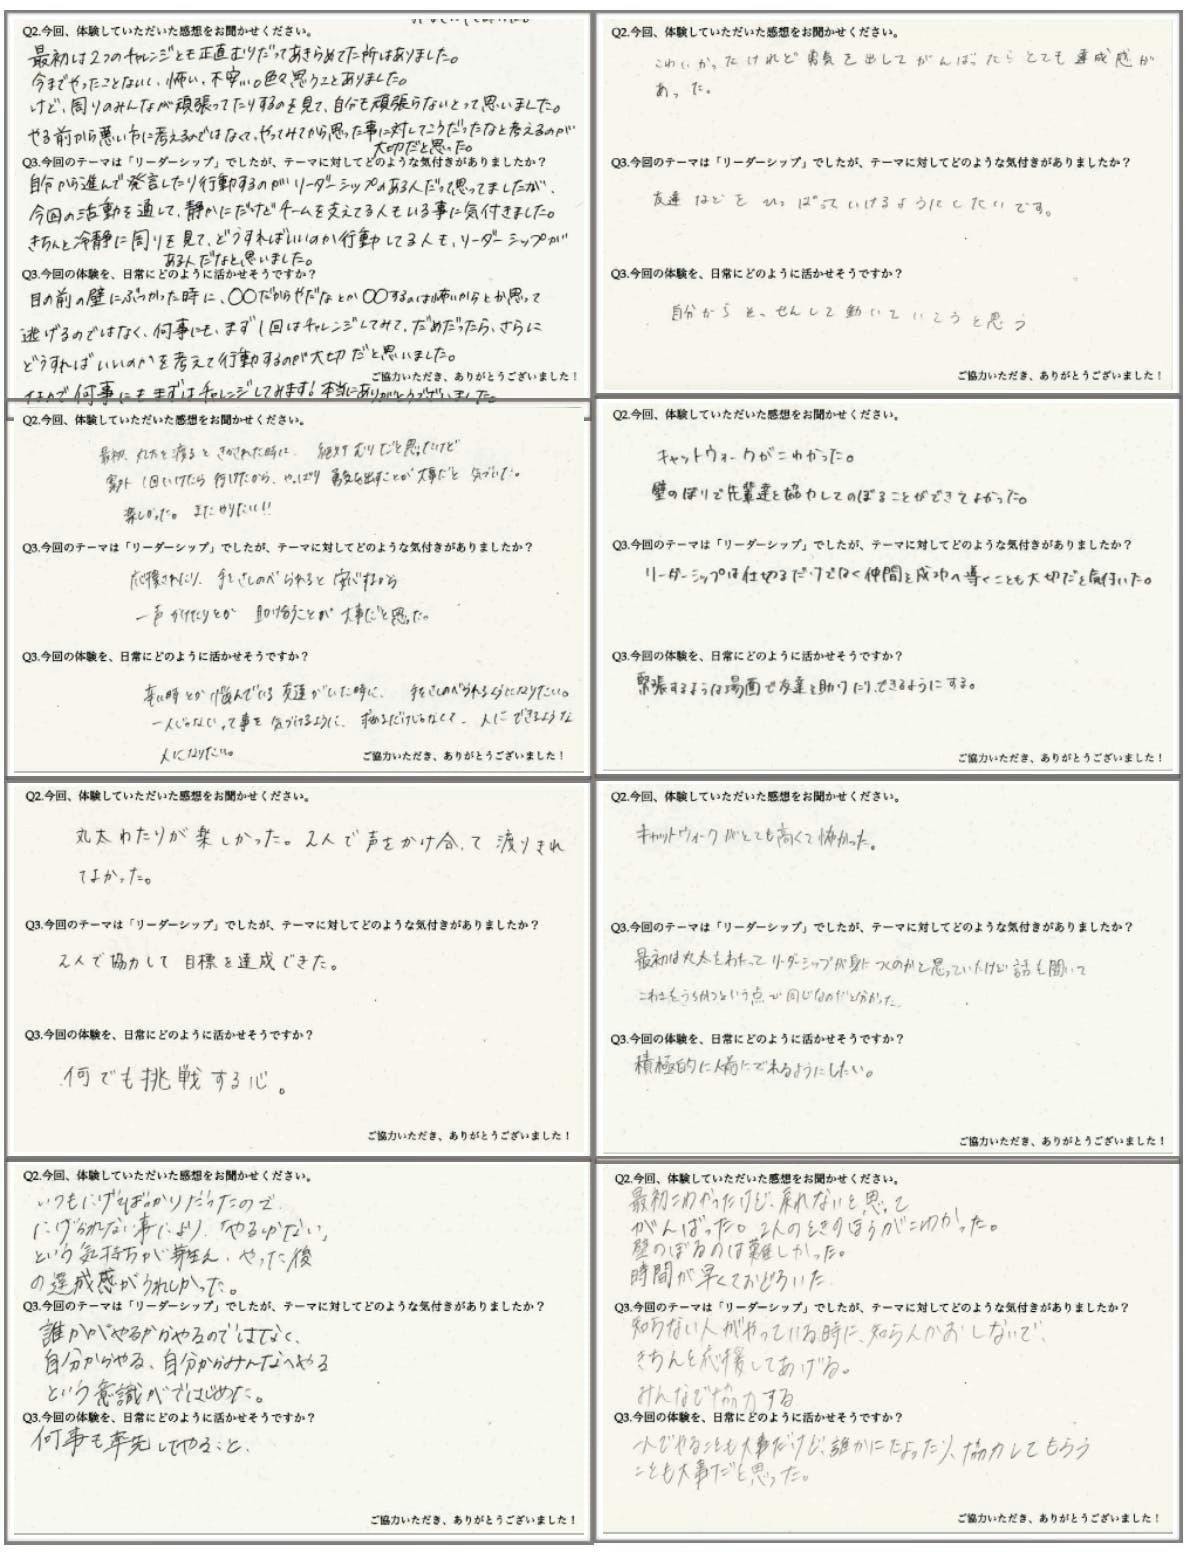 Q2.今回、体験していただいた感想をお聞かせください。
最初は2つのチャレンジとも正直むりだってあきらめてた所はありました。
今までやったことないし、怖い、不安い。色々思うことありました。
けど、周りのみんなが頑張ってたりするのを見て、自分も頑張らないとって思いました。
やる前から悪い方に考えるのではなくて、やってみてから思った事に対してこうだったなと考えるのが
大切だと思った。
Q3.今回のテーマは「リーダーシップ」でしたが、テーマに対してどのような気付きがありましたか？
自分から進んで発言したり行動するのがリーダーシップのある人だって思ってましたが、
今回の活動を通して、静かにだけどチームを支えてる人もいる事に気付きました。
きちんと冷静に周りを見て、どうすればいいのか行動してる人も、リーダーシップが
ある人だなと思いました。
Q3.今回の体験を、日常にどのように活かせそうですか？
目の前の壁にぶつかった時に、〇〇だからやだなとか〇〇するのは怖いからとか思って
逃げるのではなく、何事にも、まず1回はチャレンジしてみて、だめだったら、さらに
どうすればいいのかを考えて行動するのが大切だと思いました。
ご協力いただき、ありがとうございました！
何事にもまずはチャレンジしてみます！本当にありがとうございました。
Q2.今回、体験していただいた感想をお聞かせください。
こわかったけれど勇気を出してがんばったらとても達成感が
あった。
Q3.今回のテーマは「リーダーシップ」でしたが、テーマに対してどのような気付きがありましたか？
友達などをひっぱっていけるようにしたいです。
Q3.今回の体験を、日常にどのように活かせそうですか？
自分からそっせんして動いていこうと思う
ご協力いただき、ありがとうございました！
Q2.今回、体験していただいた感想をお聞かせください。
最初、丸太を渡るときかされた時に、絶対むりだと思ったけど
案外1回いけたら行けたから、やっぱり勇気を出すことが大事だと気づいた。
楽しかった。またやりたい!!
Q3.今回のテーマは「リーダーシップ」でしたが、テーマに対してどのような気付きがありましたか？
応援されたり、手をさしのべられると安心するから
一声かけたりとか助け合うことが大事だと思った。
Q3.今回の体験を、日常にどのように活かせそうですか？
辛い時とか悩んでいる友達がいた時に、手をさしのべられるようになりたい。
一人じゃないって事を気づけるように、求めるだけじゃなくて、人にできるような
人になりたい。
ご協力いただき、ありがとうございました！
Q2.今回、体験していただいた感想をお聞かせください。
キャットウォークがこわかった。
壁のぼりで先輩達と協力してのぼることができてよかった。
Q3.今回のテーマは「リーダーシップ」でしたが、テーマに対してどのような気付きがありましたか？
リーダーシップは仕切るだけでなく仲間を成功へ導くことも大切だと気付いた。
Q3.今回の体験を、日常にどのように活かせそうですか？
緊張するような場面で友達を助けたりできるようにする。
ご協力いただき、ありがとうございました！
Q2.今回、体験していただいた感想をお聞かせください。
丸太わたりが楽しかった。2人で声をかけ合って渡りきれ
てよかった。
Q3.今回のテーマは「リーダーシップ」でしたが、テーマに対してどのような気付きがありましたか？
2人で協力して目標を達成できた。
Q3.今回の体験を、日常にどのように活かせそうですか？
何でも挑戦する心。
ご協力いただき、ありがとうございました！
Q2.今回、体験していただいた感想をお聞かせください。
キャットウォークがとても高くて怖かった。
Q3.今回のテーマは「リーダーシップ」でしたが、テーマに対してどのような気付きがありましたか？
最初は丸太をわたってリーダーシップが身につくのかと思っていたけど話を聞いて
こわさをうちかつという点で同じなのだと分かった
Q3.今回の体験を、日常にどのように活かせそうですか？
積極的に人前にでれるようにしたい。
ご協力いただき、ありがとうございました！
Q2.今回、体験していただいた感想をお聞かせください。
いつもにげてばっかりだったので
にげられない事により、「やるしかない」
という気持ちが芽生え、やった後
の達成感がうれしかった。
Q3.今回のテーマは「リーダーシップ」でしたが、テーマに対してどのような気付きがありましたか？
誰かがやるからやるのではなく、
自分からやる、自分からみんなへやる
という意識がではじめた。
Q3.今回の体験を、日常にどのように活かせそうですか？
何事も率先してやること。
ご協力いただき、ありがとうございました！
Q2.今回、体験していただいた感想をお聞かせください。
最初こわかったけど、戻れないと思って
がんばった。2人のときのほうがこわかった。
壁のぼるのは難しかった。
時間が早くておどろいた
Q3.今回のテーマは「リーダーシップ」でしたが、テーマに対してどのような気付きがありましたか？
知らない人がやっている時に、知らんかおしないで、
きちんと応援してあげる。
みんなで協力する
Q3.今回の体験を、日常にどのように活かせそうですか？
一人でやることも大事だけど、誰かにたよったり、協力してもらう
ことも大事だと思った。
ご協力いただき、ありがとうございました！